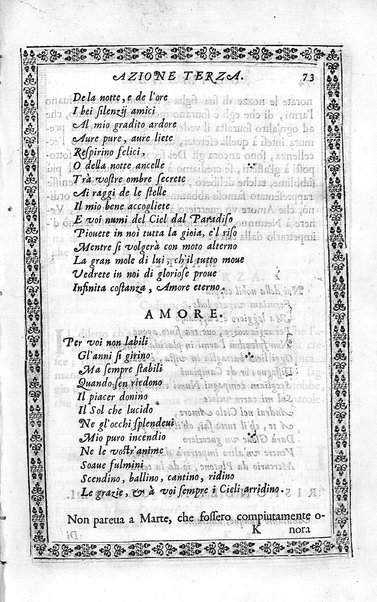 AZIONE TERZA. 73
De la notte, e de l'ore
I bei silenzij amici
Al mio gradito ardore
Aure pure, aure liete
Respirino felici,
O della notte ancelle
Trà vostre ombre secrete
Ai raggi de le stelle
Il mio bene accogliete
E voi numi del Ciel dal Paradiso
Piouete in noi tutta la gioia, e'l riso
Mentre si volgerà con moto alterno
La gran mole di lui, ch'il tutto moue
Vedrete in noi di gloriose proue
Infinita costanza, Amore eterno.
AMORE.
Per voi non labili
Gl'anni si girino
Ma sempre stabili
Quando sen riedono
Il piacer donino
Il Sol che lucido
Ne gl'occhi splendeui
Mio puro incendio
Ne le vostr'anime
Soaue fulmini
Scendino, ballino, cantino, ridino
Le grazie, & à voi sempre i Cieli arridino.
Non pareua a Marte, che fossero compiutamente o-
K nora